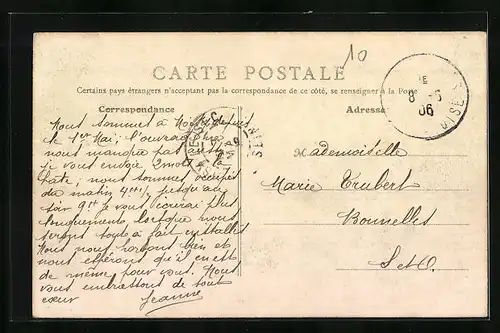 10
CARTE POSTALE
Certains pays étrangers n'acceptant pas la correspondance de ce côté, se renseigner à la Poste
Correspondance
Adresse
Nous sommes à
le 1er Mai; l'ouvrage ne
nous manque pas
je vous envoie 2 mots
hate, nous sommes occupés
du matin 4h ½ jusqu'au
soir 9h ½ vous écrirai plus
longuement lorsque nous
serons tout à fait installés
Nous nous portons bien et
nous espérons qu'il en est
de même pour vous. Nous
vous embrassons de tout
cœur Jeanne
Mademoiselle
Marie Trubert
Bonnelles
S et O.
8 - 5
06
OISE